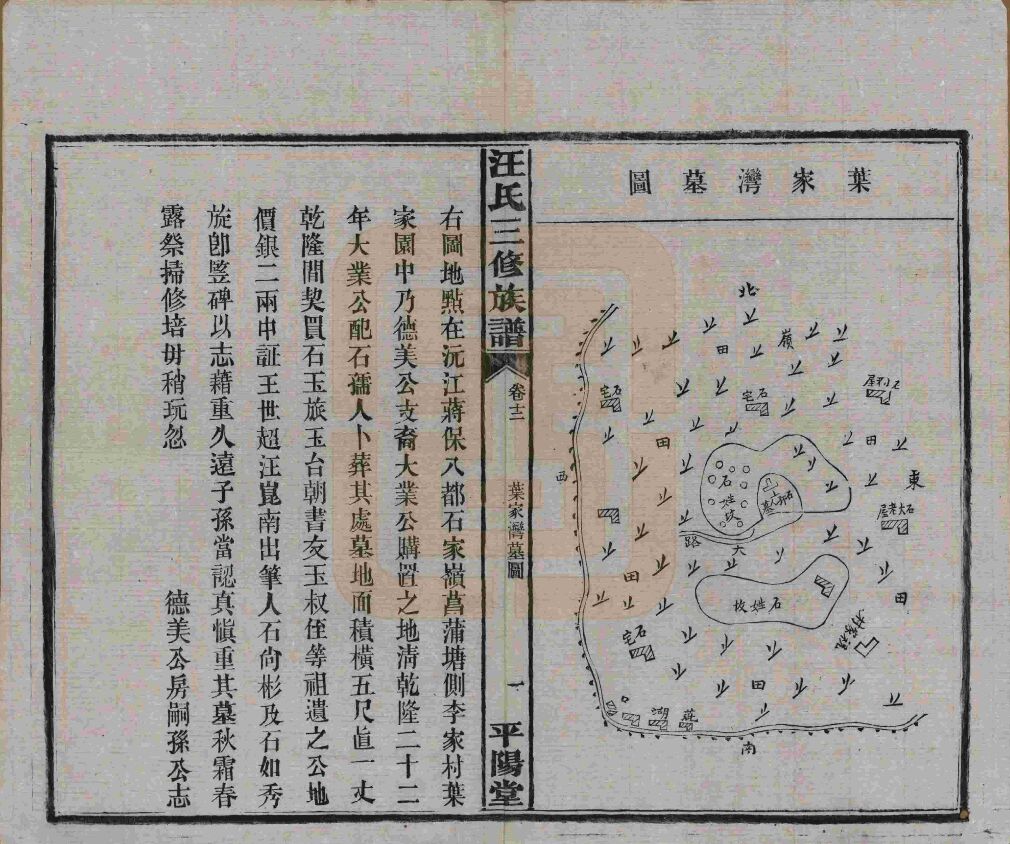 葉家灣墓圖
北
嶺
田
石宅
石宅
東
西
田
田
石姓坟
墓
路
大
田
田
石姓坟
石宅
田
湖
南
汪氏三修族譜
卷十二
葉家灣墓圖
一
平陽堂
右圖地點在沅江蔣保入都石家嶺菖蒲塘側李家村葉
家園中乃德美公支裔大業公購置之地清乾隆二十二
年大業公配石孺人卜葬其處墓地面積橫五尺直一丈
乾隆間契買石玉旅玉台朝書友玉叔侄等祖遺之公地
價銀二兩中証王世超汪崑南出筆人石尙彬及石如秀
旋卽竪碑以志藉重久遠子孫當認真愼重其墓秋霜春
露祭掃修培毋稍玩忽
德美公房嗣孫公志